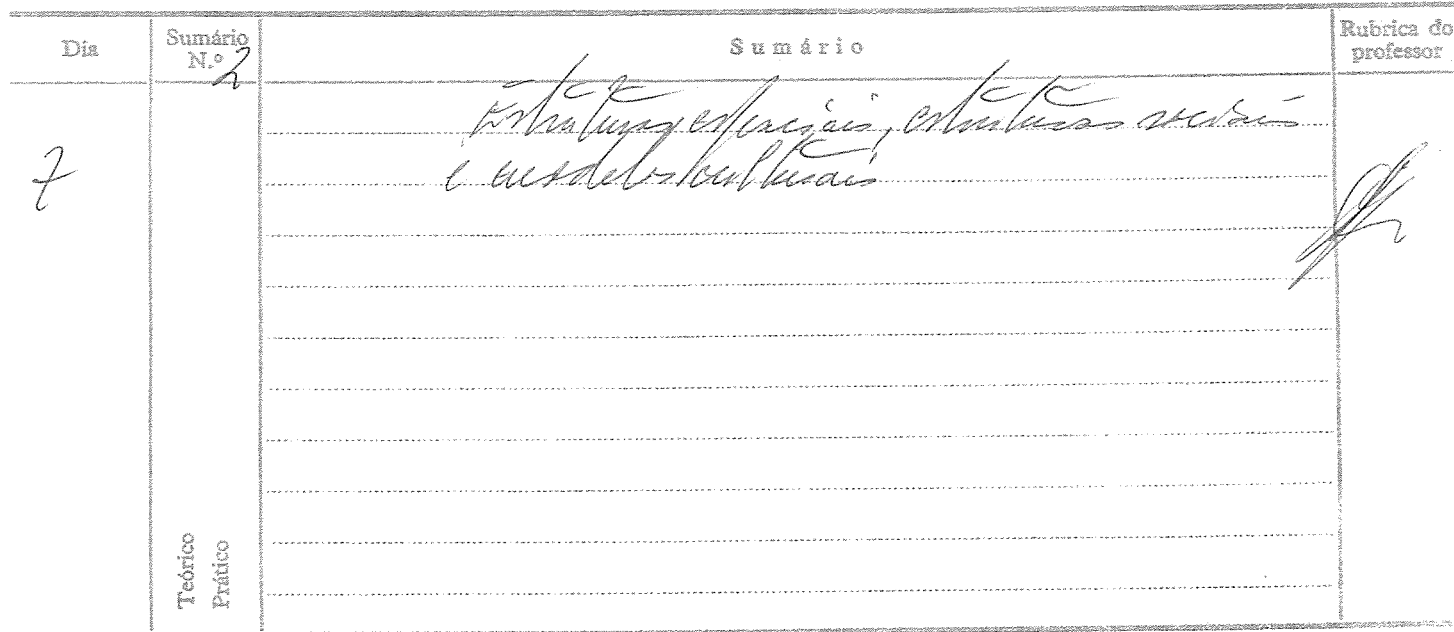 Dia
Sumário
N.º 2
Sumário
Rubrica do
professor
7
Estruturas espaciais, estruturas sociais
e modelos culturais
Teórico
Prático